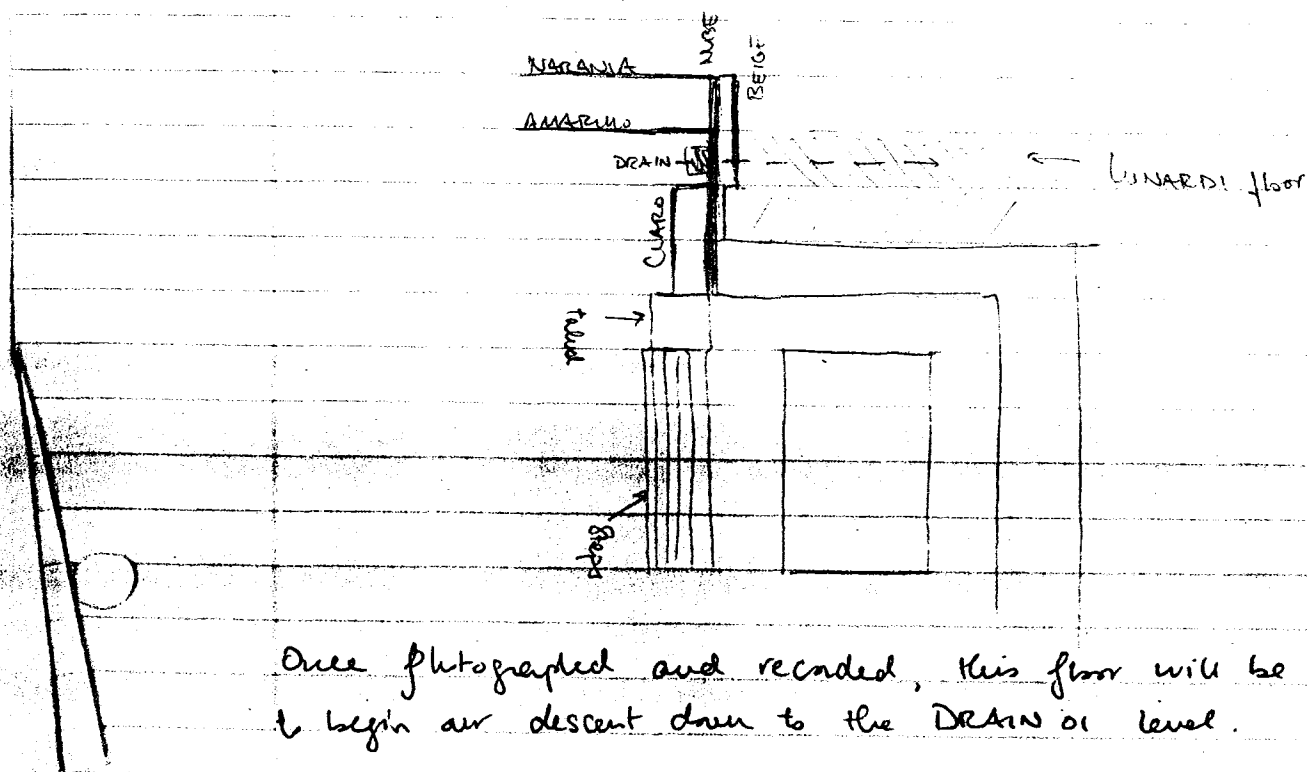 NUBE
NARANJA
BEIGE
AMARILLO
DRAIN
LUNARDI floor
CLARO
talud
Steps
Once photographed and recorded, this floor will be
to begin our descent down to the DRAIN 01 level.